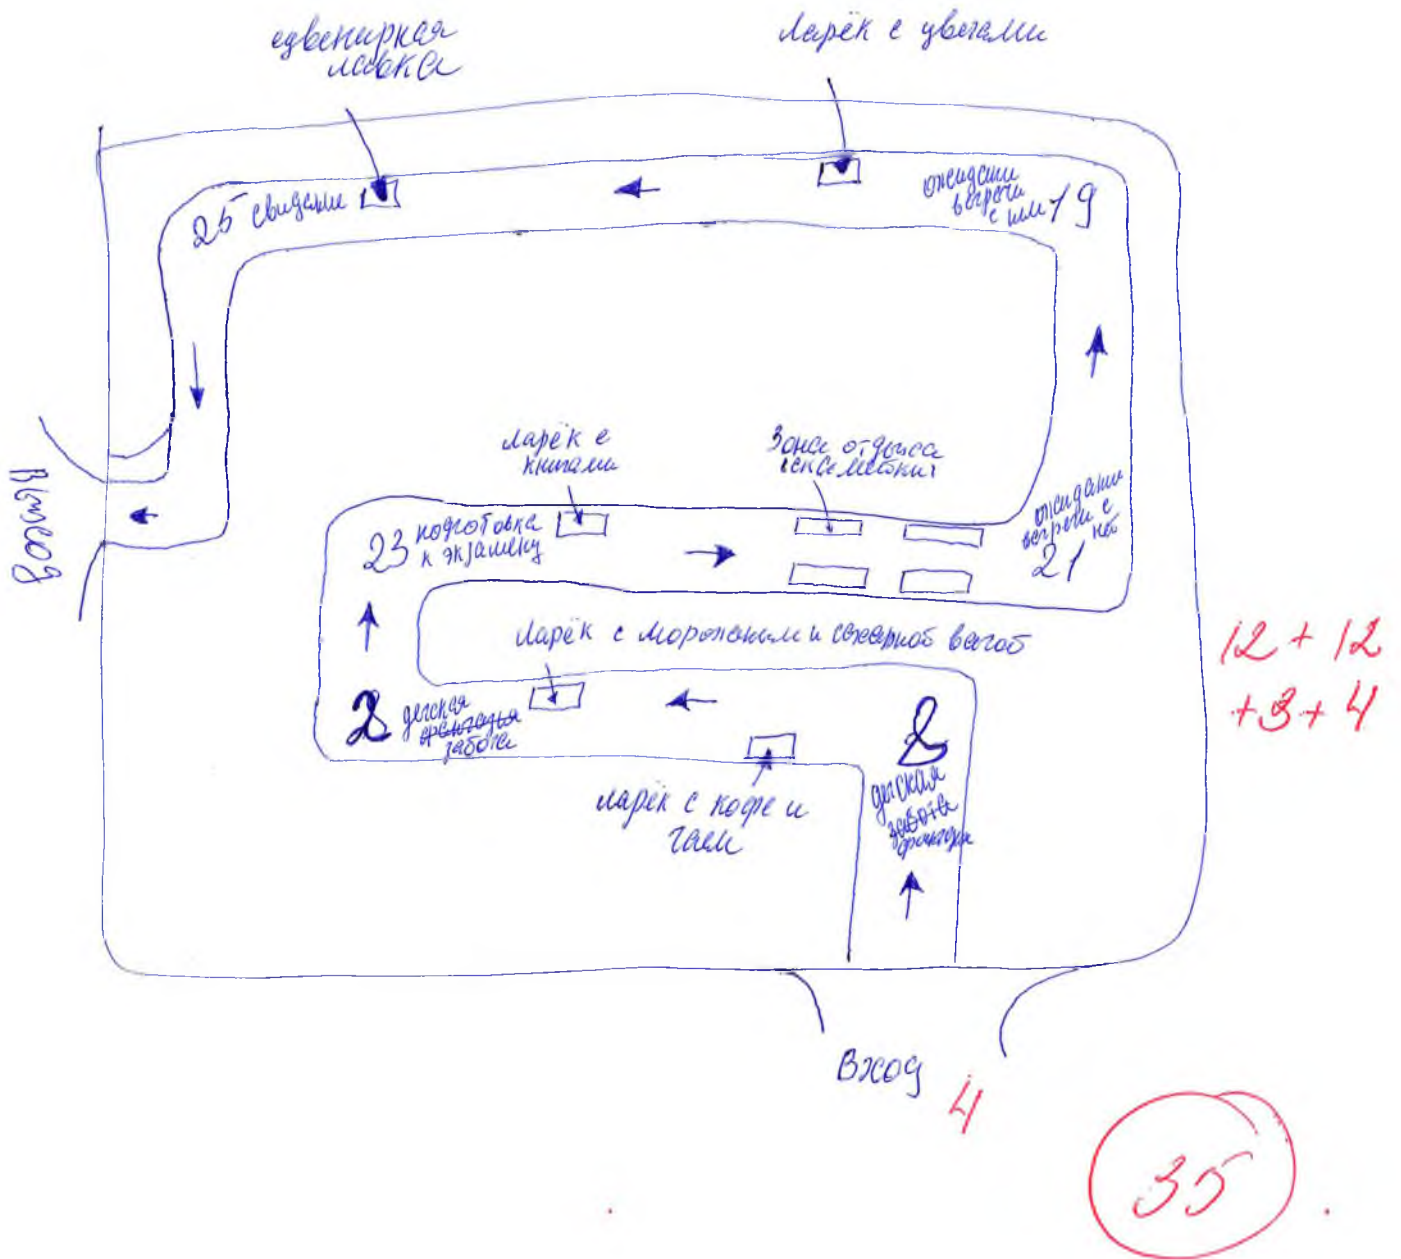 сувенирная
лавка
Ларёк с цветами
25 свидание
ожидание
встречи
с ним 19
ларёк с
книгами
Зона отдыха
(скамейки)
Выход
23 подготовка
к экзамену
ожидание
встречи с
ней
21
Ларёк с мороженым и сахарной ватой
2 детская
фантазия
забота
2
детская
забота
фантазия
ларёк с кофе и
чаем
12 + 12
+ 3 + 4
Вход 4
35